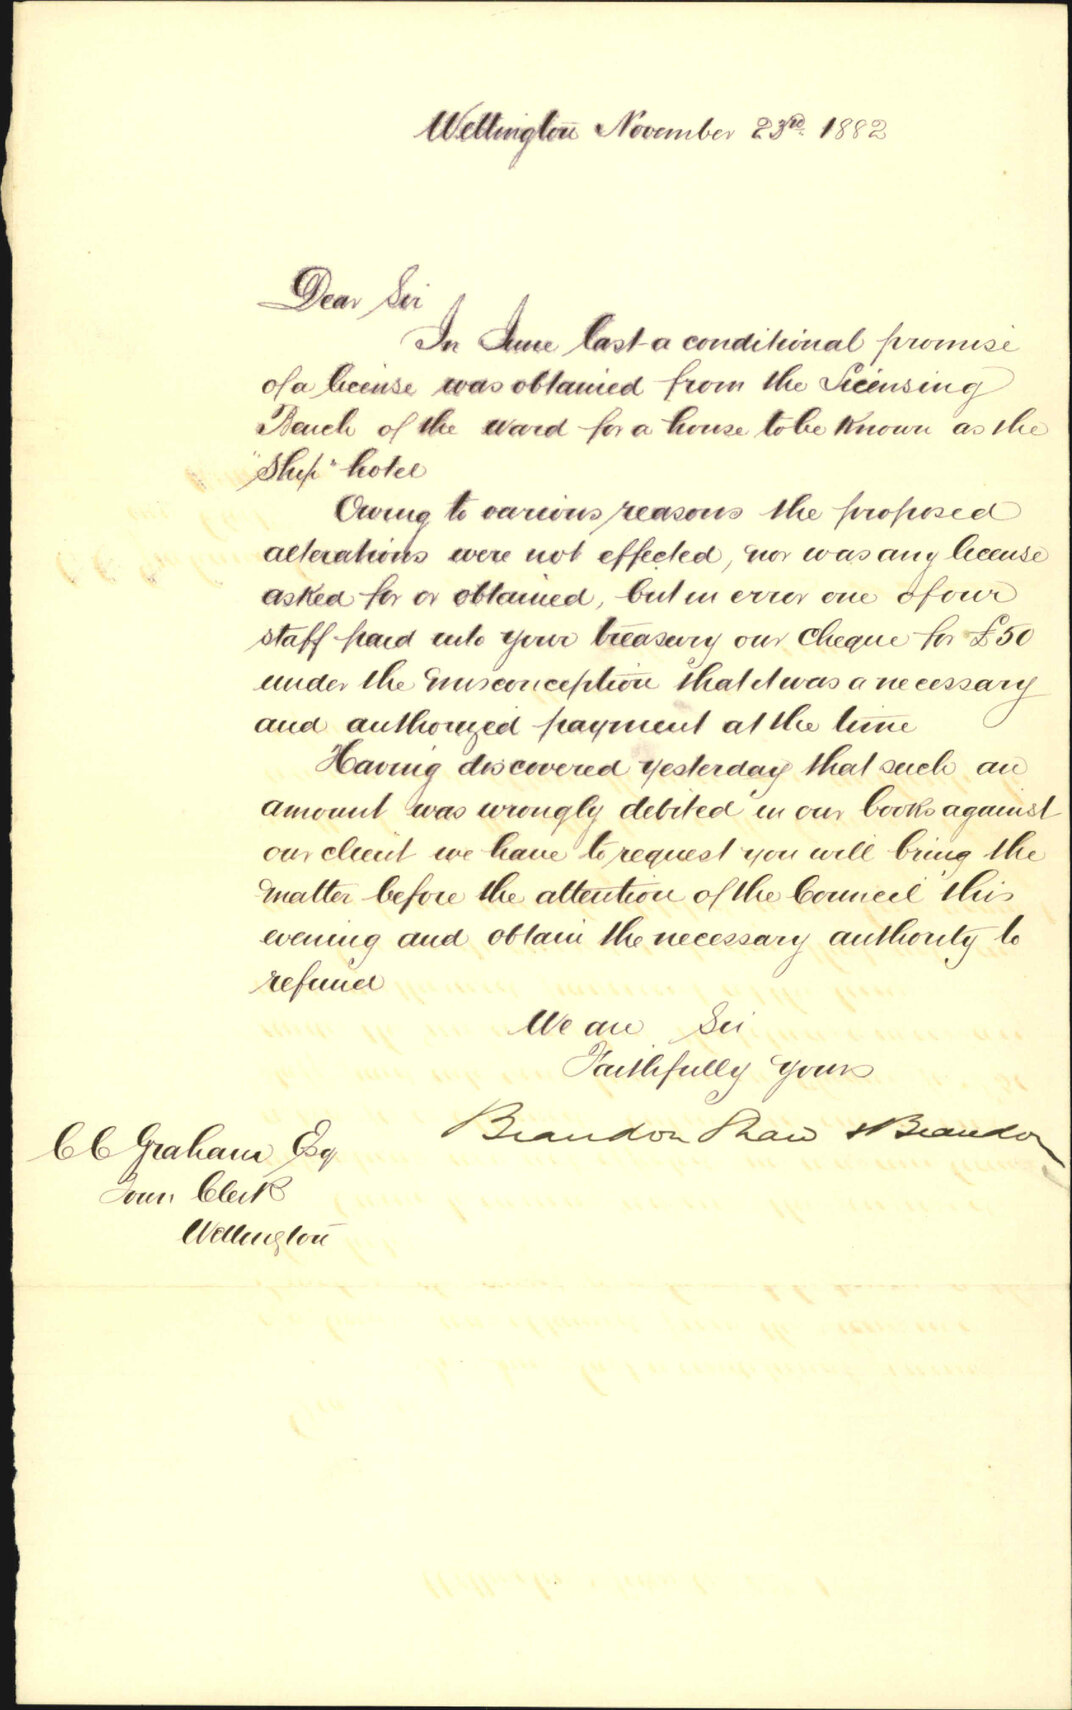 Wellington November 23rd. 1882
Dear Sir
In June last a conditional promise
of a license was obtained from the Licensing
Bench of the ward for a house to be known as the
"Ship" hotel
Owing to various reasons the proposed
alterations were not effected, nor was any license
asked for or obtained, but in error one of our
staff paid into your treasury our cheque for £50
under the misconception that it was a necessary
and authorized payment at the time
Having discovered yesterday that such an
amount was wrongly debited in our books against
our client we have to request you will bring the
matter before the attention of the Council this
evening and obtain the necessary authority to
refund
We are Sir
Faithfully yours
Brandon Shaw & Brandon
C C Graham Esq
Town Clerk
Wellington